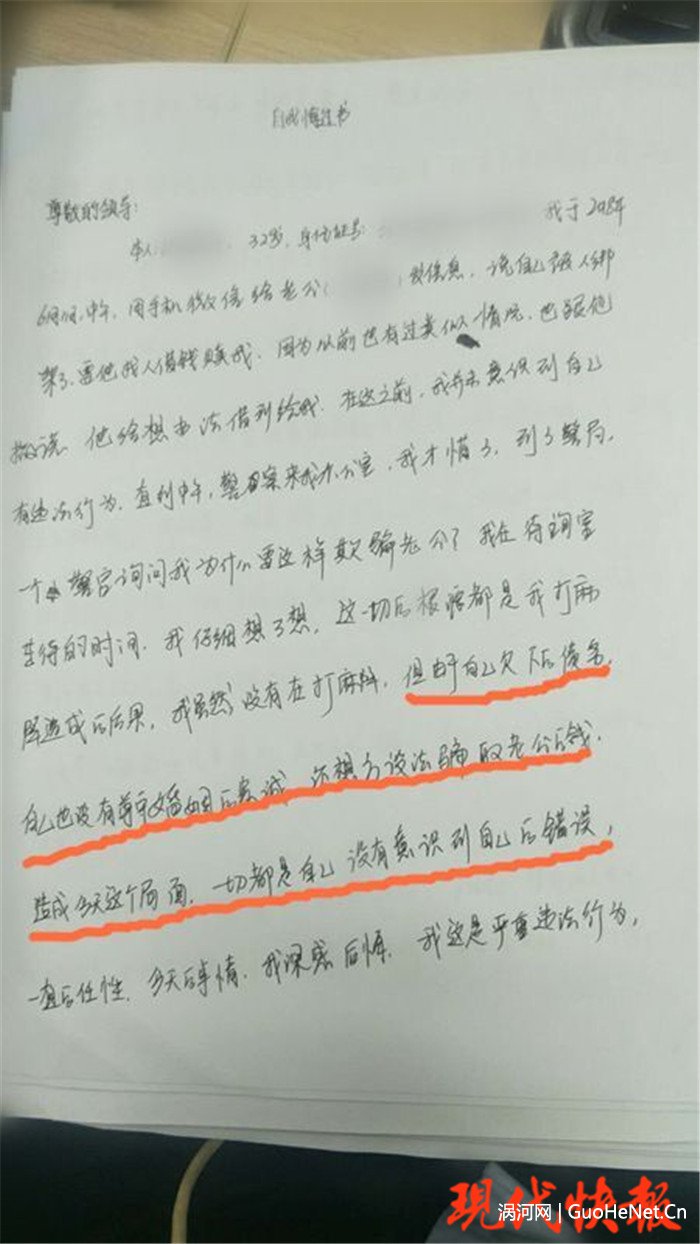 自我悔过书
尊敬的领导:
本人 , 32岁, 身份证号: 我于2018年
6月 日, 中午, 用手机微信给老公( )发信息, 说自己被人绑
架了, 要他找人借钱赎我. 因为以前也有过类似情况, 也跟他
撒谎. 他给想办法借到给我. 在这之前, 我并未意识到自己
有违法行为. 直到中午, 警察来我办公室, 我才懵了, 到了警局,
一个警官询问我为什么要这样欺骗老公? 我在待询室
等待的时间. 我仔细想了想, 这一切后根源都是我打麻
将造成后后果, 我虽然没有在打麻将, 但由于自己欠下后债务,
自己也没有尊守婚姻后忠诚 还想方设法骗取老公后钱.
造成今天这个局面. 一切都是自己没有意识到自己后错误,
一直后任性. 今天后事情. 我深感后悔. 我这是严重违法行为,
现代快報
涡河网 | GuoHeNet.Cn